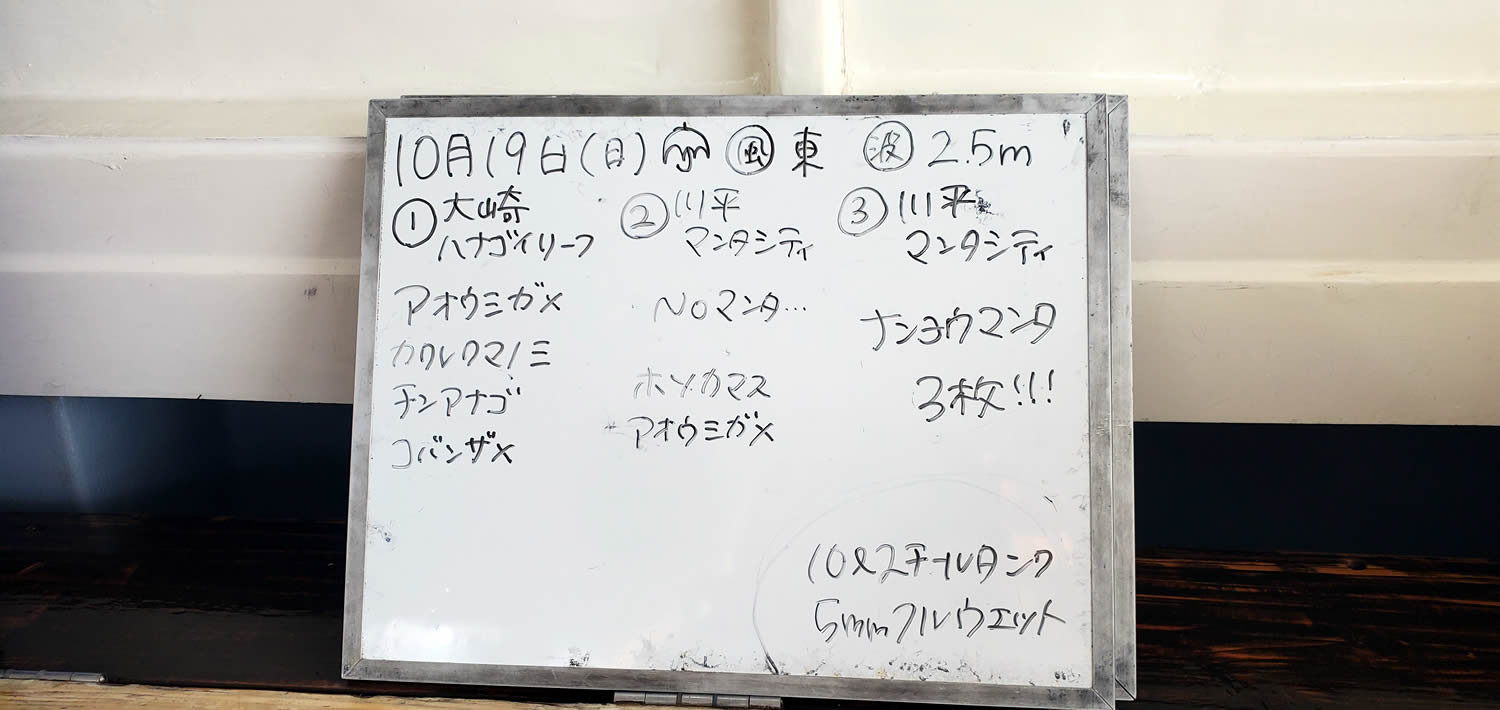 10月19日(日) 風 東 波 2.5m
① 大崎
ハナゴイリーフ
アオウミガメ
カクレクマノミ
チンアナゴ
コバンザメ
② 川平
マンタシティ
NOマンタ…
ホソカマス
アオウミガメ
③ 川平
マンタシティ
ナンヨウマンタ
3枚!!!
10ℓスチールタンク
5mmフルウエット